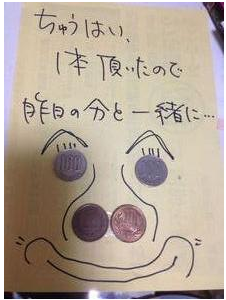 ちゅうはい、
1本頂いたので
昨日の分と一緒に…